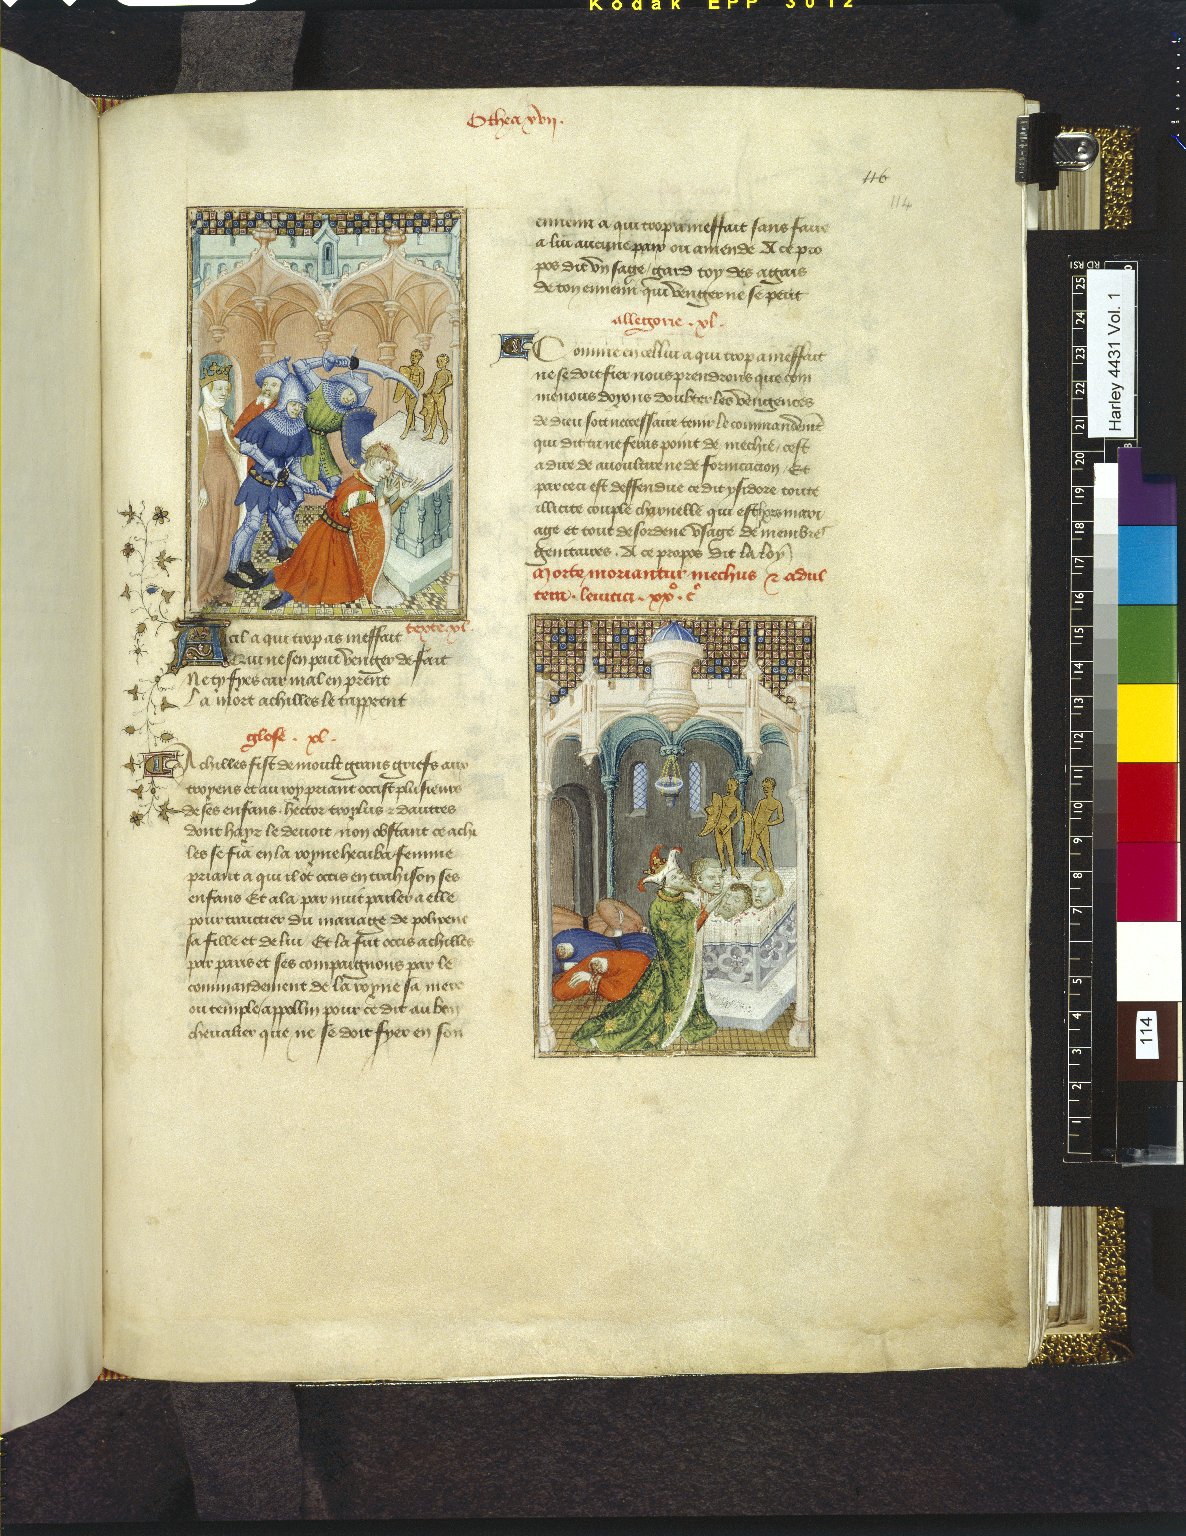 Kodak EPP 3012
Othea xvii.
116
114
texte .xl.
A cil a qui trop as meffait
Qui ne sen peut venger de fait
Ne ty fyes car mal en prent
La mort achilles le tapprent
glose . xl .
Achilles fist de moult grans griefs aux
troyens et au roy priant occist plusieurs
de ses enfans hector troylus & dautres
dont hayr le devoit non obstant ce achi
les se fia en la royne hecuba femme
priant a qui il ot occis en trahison ses
enfans Et ala par nuit parler a elle
pour traictier du mariage de polixene
sa fille et de lui Et la fut occis achilles
par paris et ses compaignons par le
commandement de la royne sa mere
ou temple appollin pour ce dit au bon
chevalier que ne se doit fyer en son
ennemi a qui trop a meffait sans faire
a lui aucune paix ou amende A ce pro
pos dit un sage / gard toy des agais
de ton ennemi qui venger ne se peut
allegorie . xl .
Comme en cellui a qui trop a meffait
ne se doit fier nous prendrons que com
me nous doyons doubter les vengences
de dieu soit necessaire tenir le commandement
qui dit tu ne feras point de mechie / cest
a dire de avoultire ne de fornicacion / Et
par ceci est deffendue ce dit ysidore toute
illicite couple charnelle qui est hors mari
age et tout desordene usage de membres
genitaires . A ce propos dit la loy
Morte moriantur mechus & adul
tera . levitici . xx° . c°
Harley 4431 Vol. 1
25
24
23
22
21
20
19
18
17
16
15
14
13
12
11
10
9
8
7
6
5
4
3
2
1
114